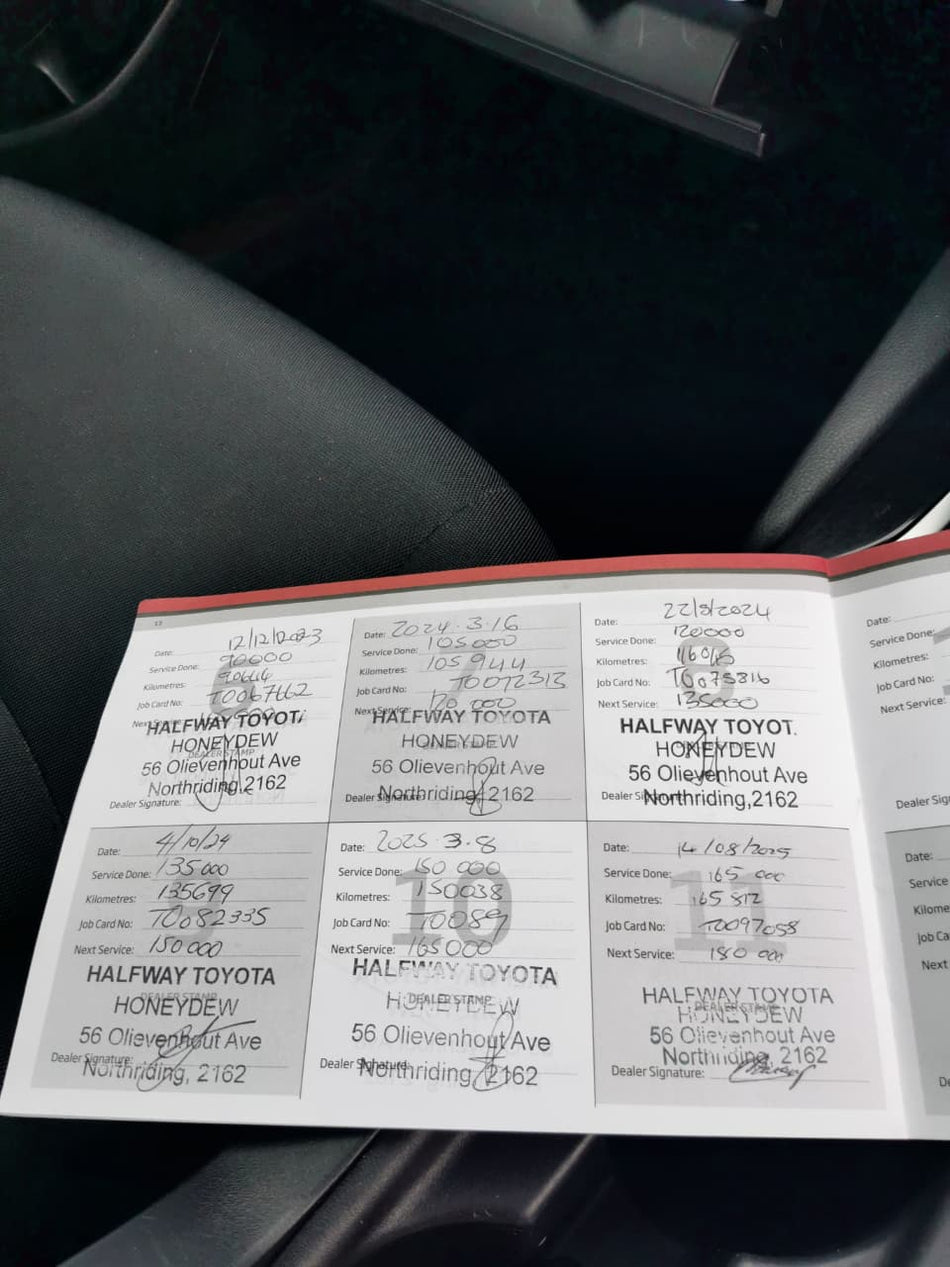 12
Date: 12/12/2023
Service Done: 90000
Kilometres: 90664
Job Card No: T0067662
HALFWAY TOYOTA
HONEYDEW
DEALER STAMP
56 Olievenhout Ave
Northriding, 2162
Dealer Signature:
Date: 2024.3.16
Service Done: 105000
Kilometres: 105944
Job Card No: T0072313
Next Service: 120 000
HALFWAY TOYOTA
HONEYDEW
56 Olievenhout Ave
Northriding, 2162
Dealer Signature:
Date: 22/8/2024
Service Done: 120000
Kilometres:
Job Card No:
Next Service: 135000
HALFWAY TOYOT
HONEYDEW
56 Olievenhout Ave
Northriding, 2162
Date: 4/10/24
Service Done: 135 000
Kilometres: 135699
Job Card No: T0082335
Next Service: 150 000
HALFWAY TOYOTA
HONEYDEW
DEALER STAMP
56 Olievenhout Ave
Northriding, 2162
Dealer Signature:
10
Date: 2025.3.8
Service Done: 150 000
Kilometres: 150038
Job Card No: T0089
Next Service: 165 000
HALFWAY TOYOTA
HONEYDEW
DEALER STAMP
56 Olievenhout Ave
Northriding, 2162
Dealer Signature:
11
Date: 14/08/2025
Service Done: 165 000
Kilometres: 165 812
Job Card No: T0097058
Next Service: 180 000
HALFWAY TOYOTA
DEALER STAMP
HONEYDEW
56 Olievenhout Ave
Northriding, 2162
Dealer Signature:
Date:
Service Done:
Kilometres:
Job Card No:
Next Service:
Dealer
Date:
Service
Next